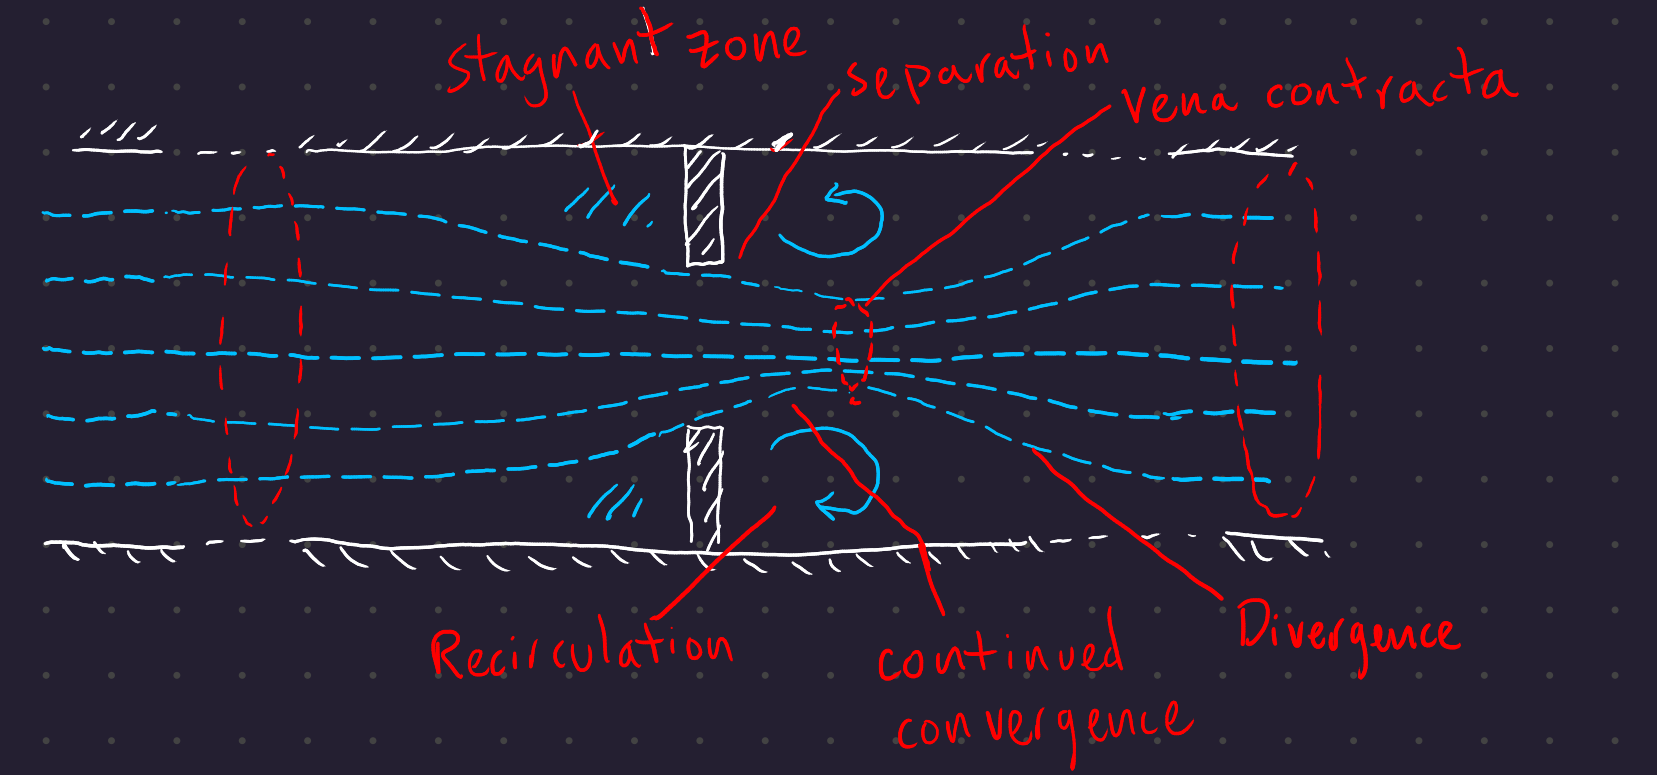 stagnant zone
separation
vena contracta
Recirculation
continued
convergence
Divergence